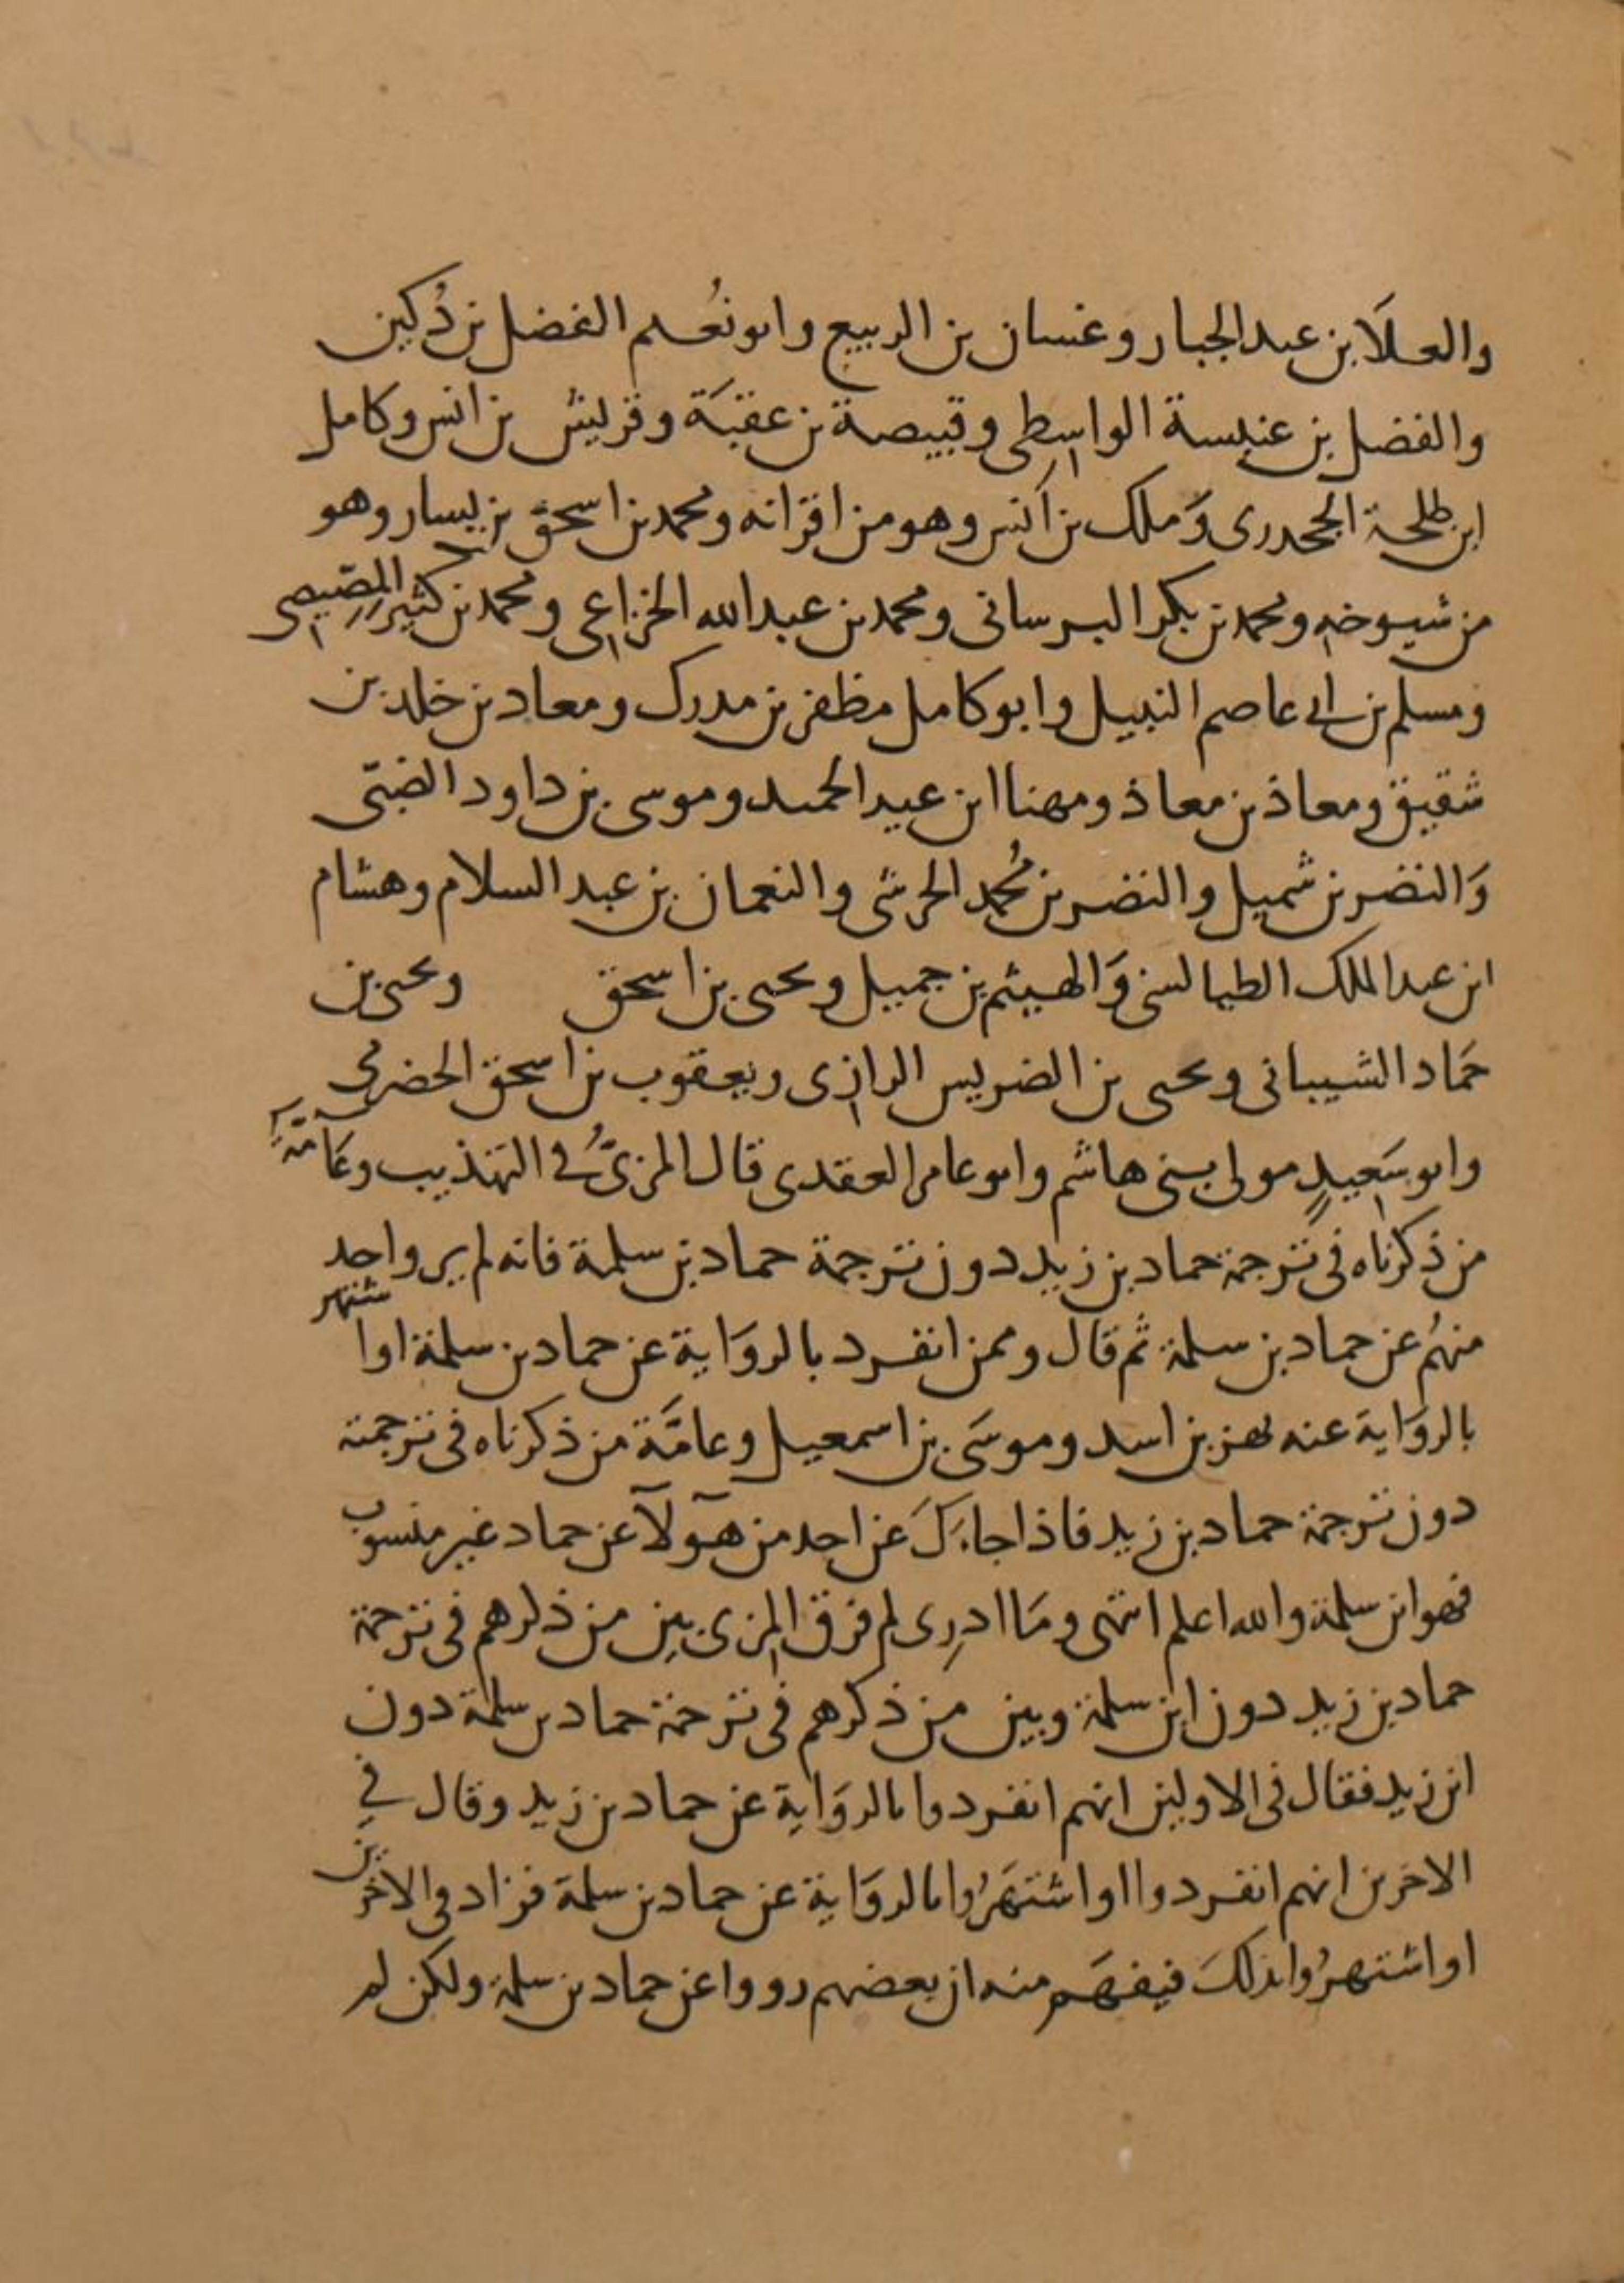 والعلَا بن عبد الجبار وغسان بن الربيع وابو نُعيم الفضل بن دُكين
والفضل بن عنبسة الواسطى وقبيصة بن عقبَة وقريش بن انس وكامل
ابن طلحة الجحدرى وَملك بن اَنس وهو من اقرانه ومحمد بن اسحق بن يسار وهو
من شيوخه ومحمد بن بكر البرسانى ومحمد بن عبد الله الخزاعى ومحمد بن كثير المِصّيصى
ومسلم بن ابى عاصم النبيل وابو كامل مظفر بن مدرك ومعاد بن خلد بن
شقيق ومعاذ بن معاذ ومهنا ابن عبد الحميد وموسى بن داود الضبّى
وَالنضر بن شميل والنضر بن مُحمد الحرشى والنعمان بن عبد السلام وهشام
ابن عبد الملك الطيالسى وَالهيثم بن جميل ويحيى بن اسحق ويحيى بن
حَماد الشيبانى ويحيى بن الضريس الرازى ويعقوب بن اسحق الحضرمى
وابو سَعيدٍ مولى بنى هاشم وابو عامر العقدى قال المزىُّ فى التهذيب وعَامّةُ
من ذكرناه فى ترجمة حماد بن زيد دون ترجمة حماد بن سلمة فانه لم يرو احد
منهُم عن حماد بن سلمة ثم قال وممن انفرد بالروَاية عن حماد بن سلمة او اشتهر
بالروَاية عنه بهز بن اسد وموسَى بن اسمعيل وعامَّة من ذكرناه فى ترجمته
دون ترجمة حماد بن زيد فاذا جاءَكَ عن احد من هآولآ عن حماد غير منسوب
فهو ابن سلمة والله اعلم انتهى ومَا ادرِى لم فرق المزى بين من ذكرهم فى ترجمة
حماد بن زيد دون ابن سلمة وبين من ذكرهم فى ترجمة حماد بن سلمة دون
ابن زيد فقال فى الاولين انهم انفردوا بالروَاية عن حماد بن زيد وقال في
الاخرين انهم انفردوا او اشتهَرُوا بالروَاية عن حماد بن سلمة فزاد فى الاخرين
او اشتهرُوا بذلكَ فيفهَم منه ان بعضهم رووا عن حماد بن سلمة ولكن لم